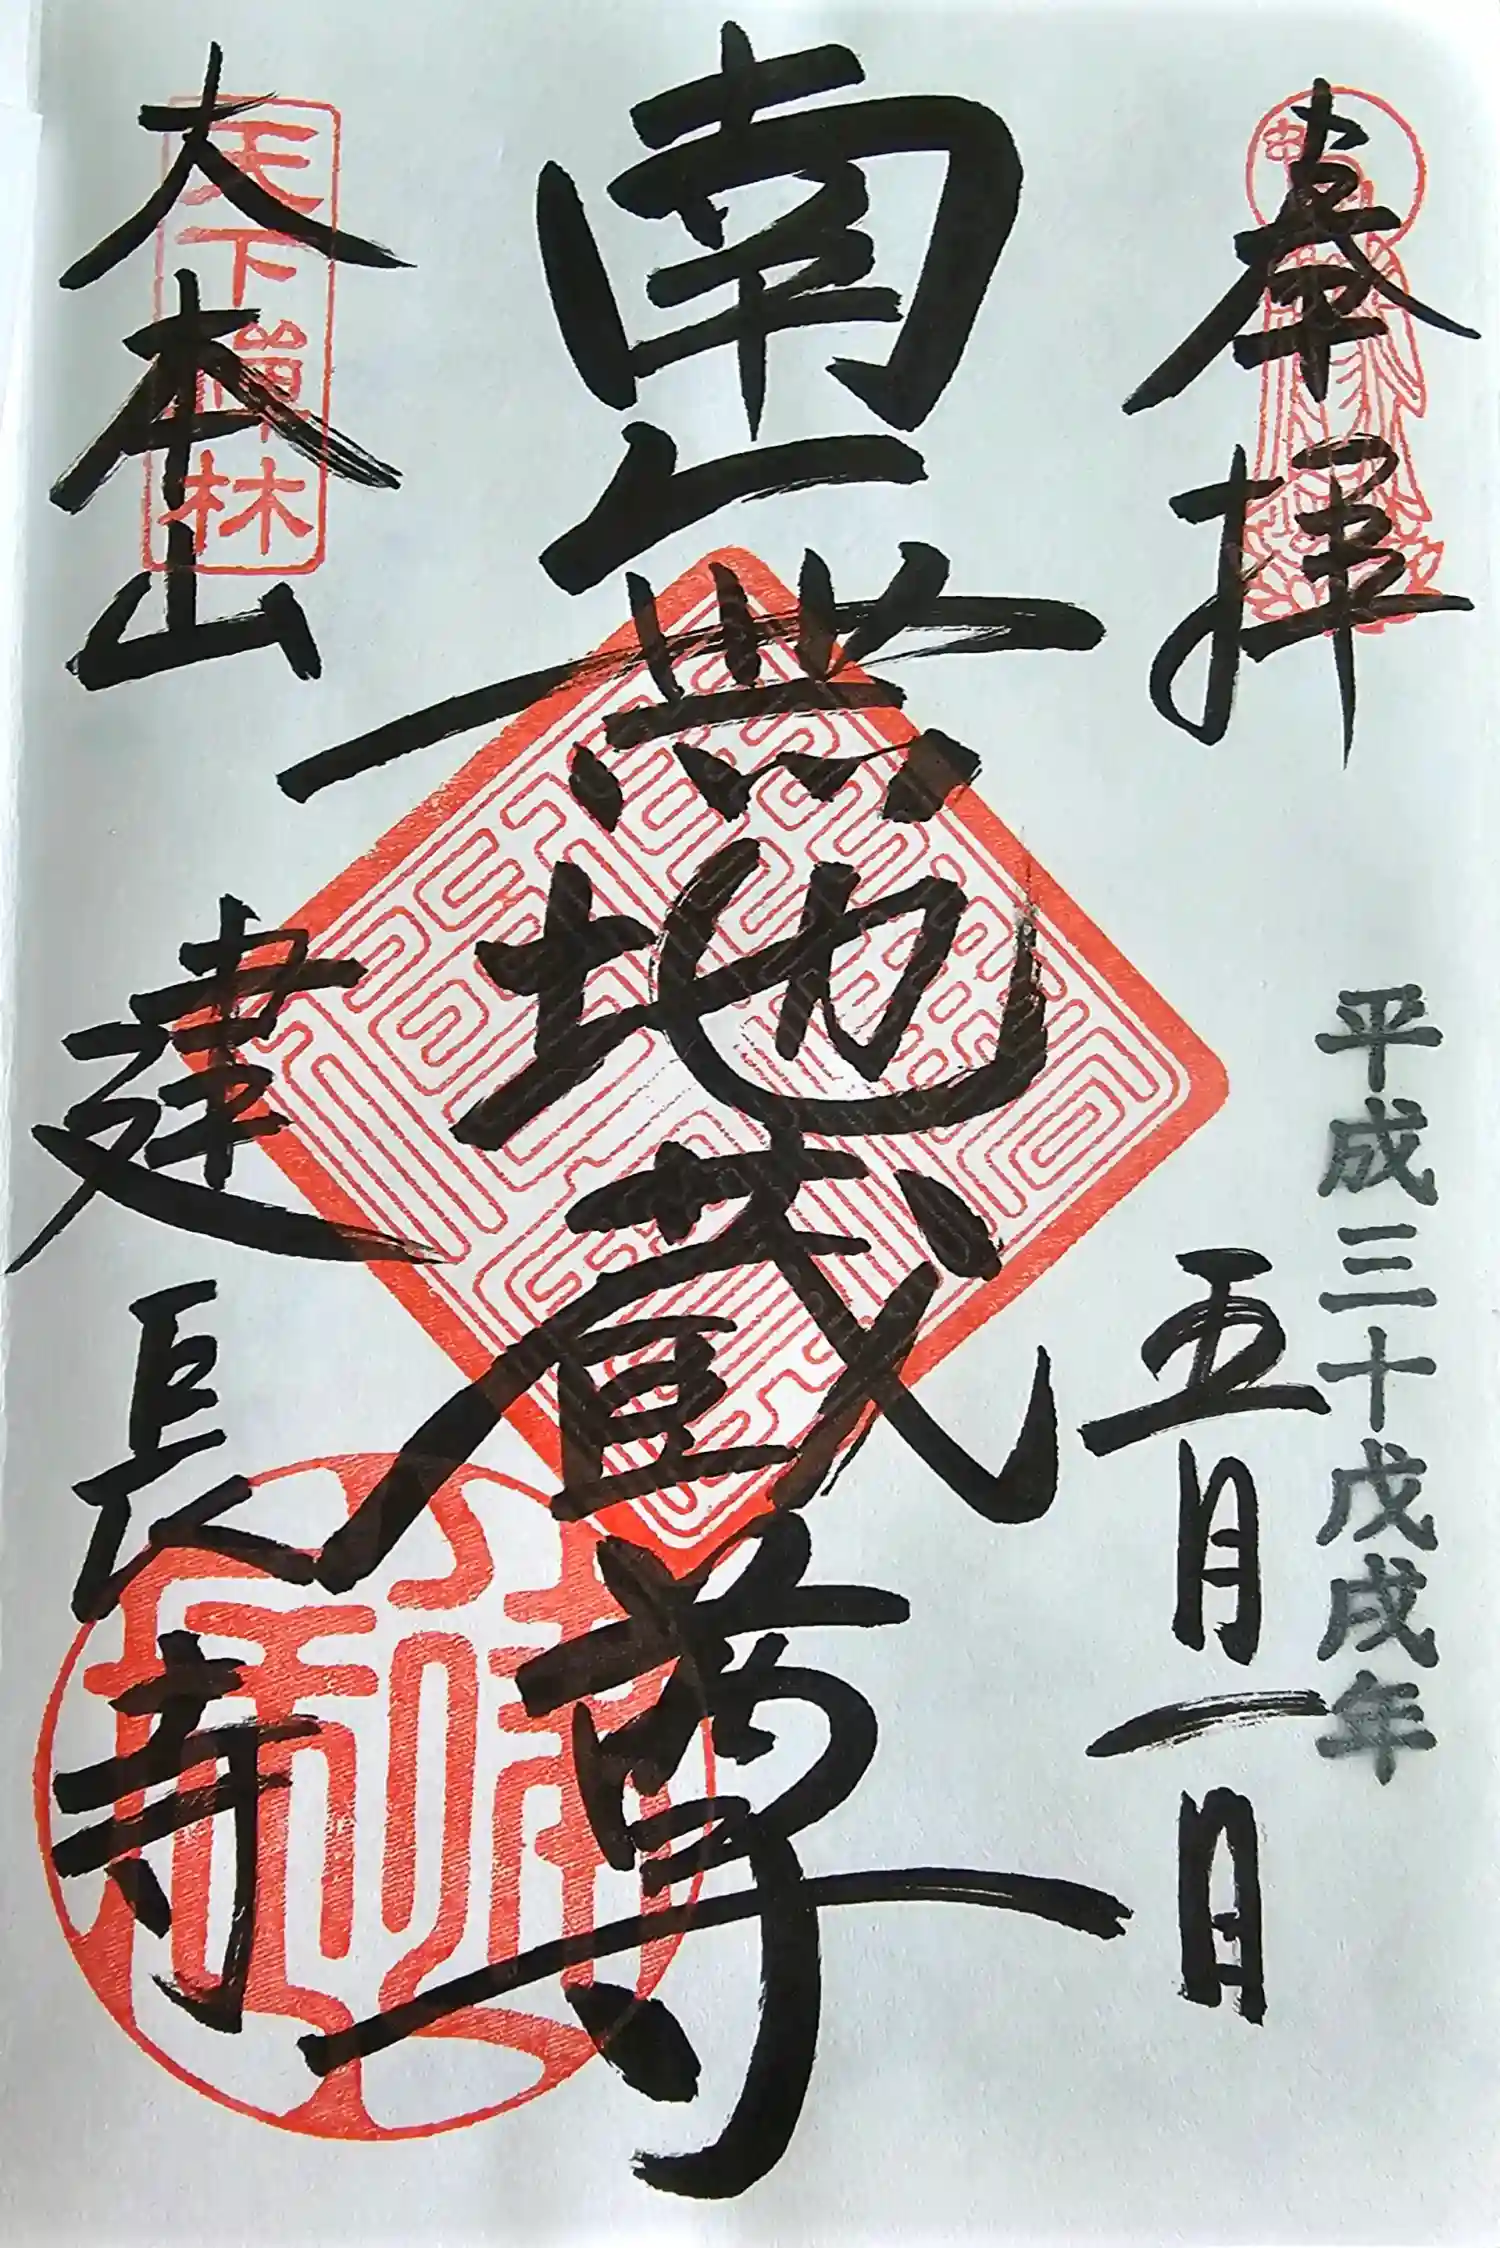 奉拝
平成三十戊戌年
五月一日
南無地蔵尊
大本山
建長寺
天下禅林